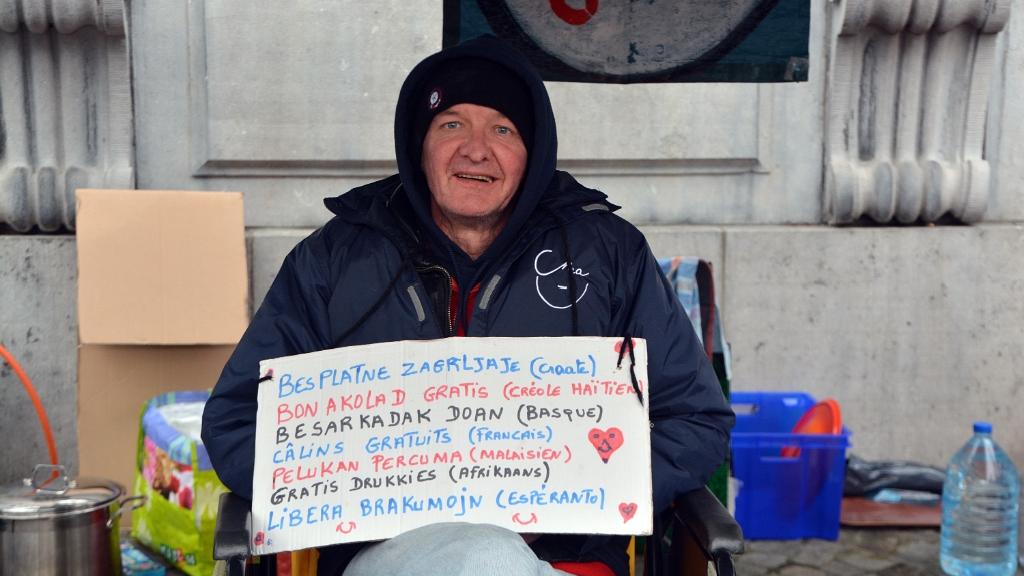 BESPLATNE ZAGRLJAJE (Croate)
BON AKOLAD GRATIS (CRÉOLE HAÏTIEN)
BESARKADAK DOAN (BASQUE)
CÂLINS GRATUITS (FRANCAIS)
PELUKAN PERCUMA (MALAISIEN)
GRATIS DRUKKIES (AFRIKAANS)
LIBERA BRAKUMOJN (ESPÉRANTO)